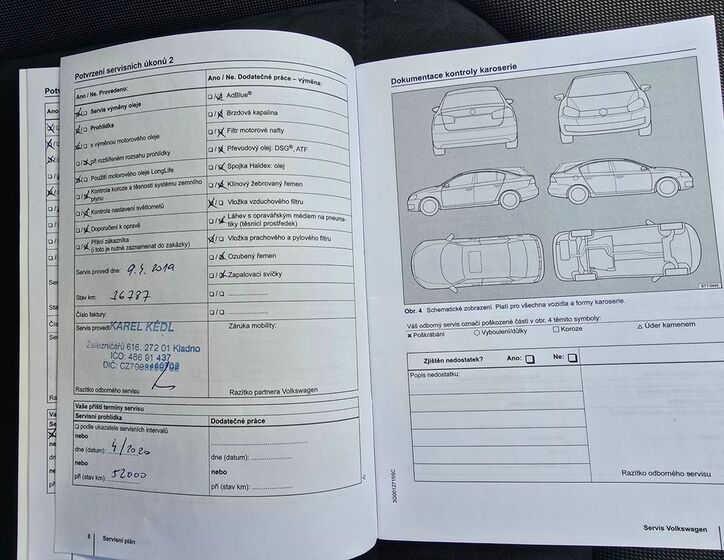 Potvrzení servisních úkonů 2
Ano / Ne. Provedeno:
Servis výměny oleje
Prohlídka
s výměnou motorového oleje
při rozšířeném rozsahu prohlídky
Použití motorového oleje LongLife
Kontrola koroze a těsnosti systému zemního
plynu
Kontrola nastavení světlometů
Doporučení k opravě
Přání zákazníka
(i toto je nutné zaznamenat do zakázky)
Servis provedl dne: 9.4.2019
Stav km: 36787
Číslo faktury:
Servis provedl
KAREL KÉDL
Železničářů 616, 272 01 Kladno
IČO: 486 91 437
DIČ:
Razítko odborného servisu
Ano / Ne. Dodatečné práce – výměna:
AdBlue®
Brzdová kapalina
Filtr motorové nafty
Převodový olej: DSG®, ATF
Spojka Haldex: olej
Klínový žebrovaný řemen
Vložka vzduchového filtru
Láhev s opravářským médiem na pneuma-
tiky (těsnicí prostředek)
Vložka prachového a pylového filtru
Ozubený řemen
Zapalovací svíčky
Záruka mobility:
Razítko partnera Volkswagen
Vaše příští termíny servisu
Servisní prohlídka
podle ukazatele servisních intervalů
nebo
dne (datum): 4/2020
nebo
při (stav km): 52000
Dodatečné práce
dne (datum):
nebo
při (stav km):
8 Servisní plán
Dokumentace kontroly karoserie
Obr. 4 Schematické zobrazení. Platí pro všechna vozidla a formy karoserie.
Váš odborný servis označí poškozené části v obr. 4 těmito symboly:
× Poškrábání ○ Vyboulení/důlky □ Koroze △ Úder kamenem
Zjištěn nedostatek? Ano: □ Ne: □
Popis nedostatku:
Razítko odborného servisu
Servis Volkswagen